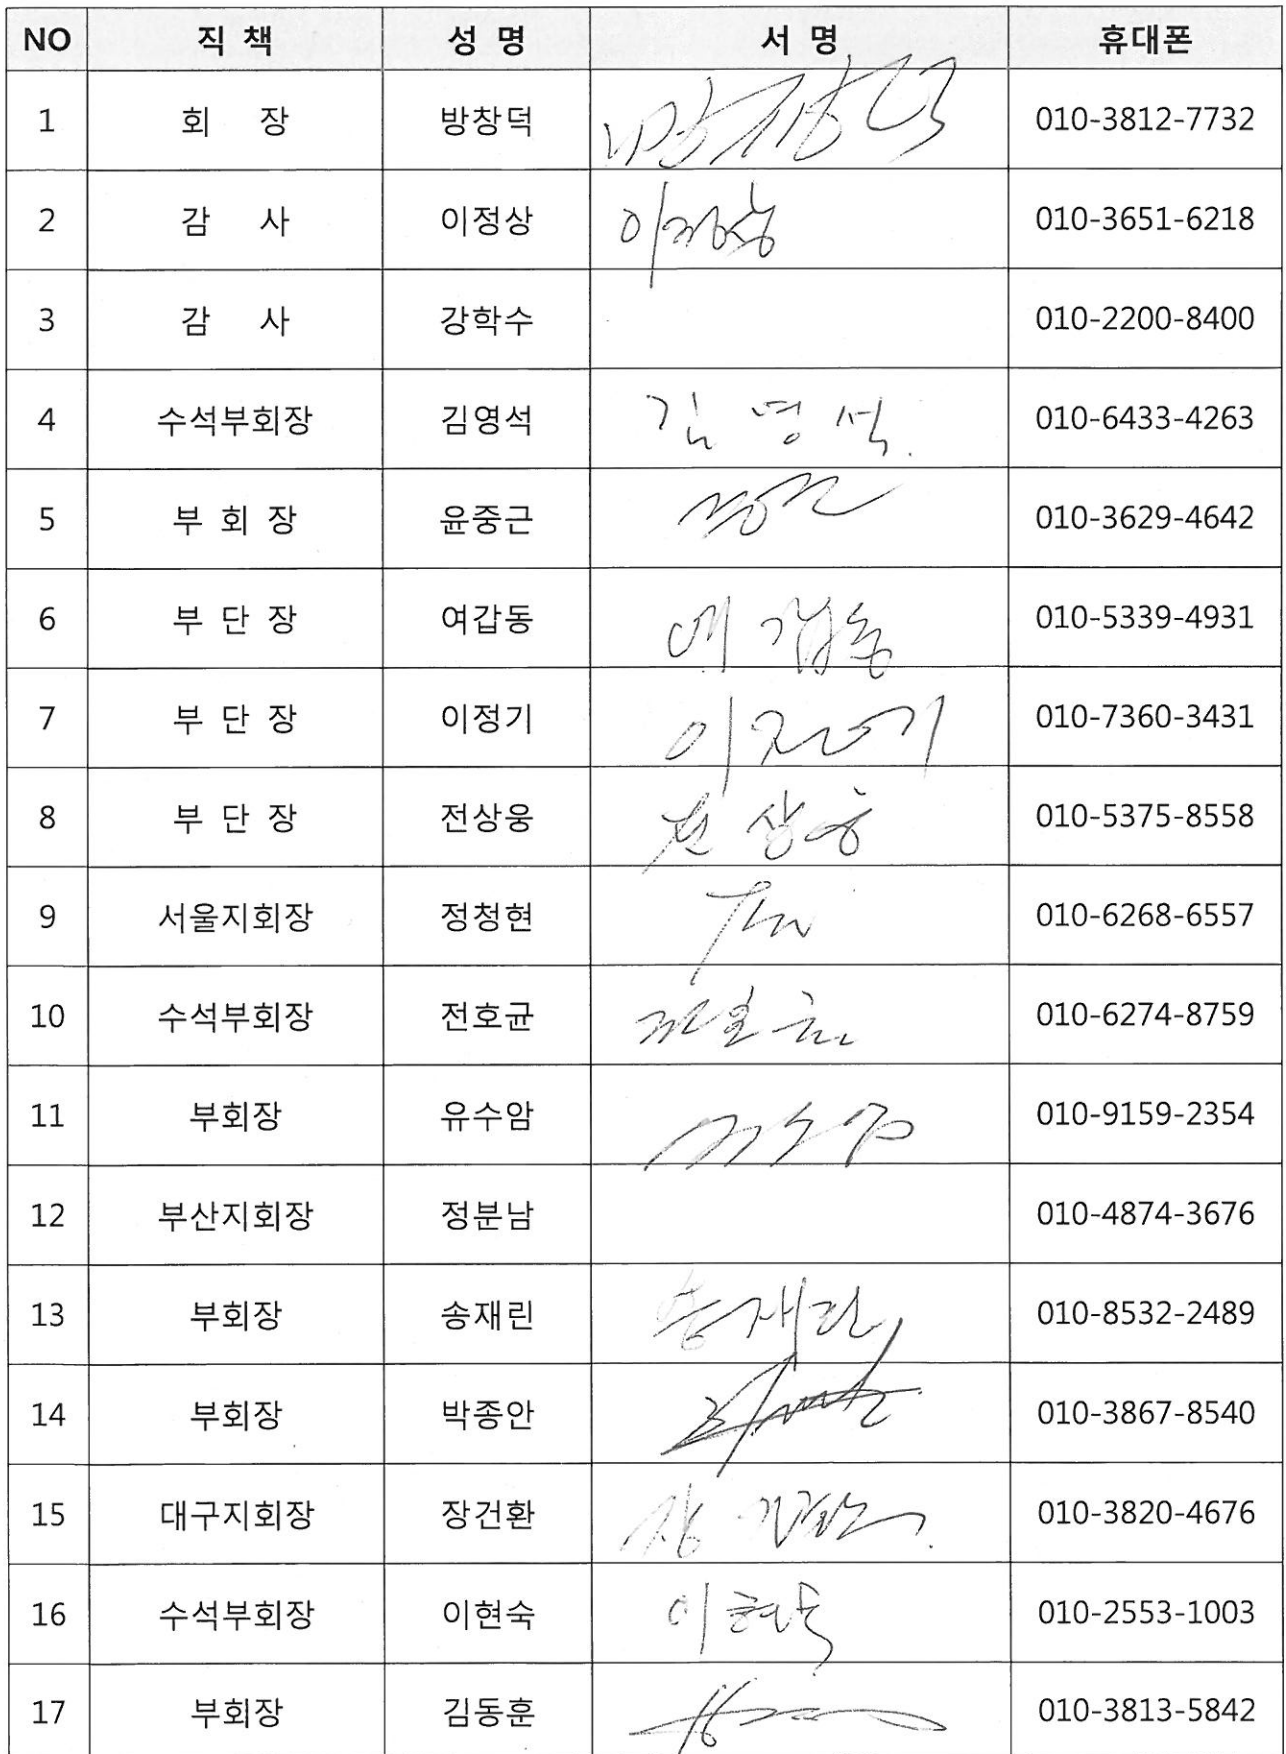 NO 직 책 성 명 서 명 휴대폰
1 회 장 방창덕 방창덕 010-3812-7732
2 감 사 이정상 이정상 010-3651-6218
3 감 사 강학수 010-2200-8400
4 수석부회장 김영석 김영석. 010-6433-4263
5 부 회 장 윤중근 010-3629-4642
6 부 단 장 여갑동 여갑동 010-5339-4931
7 부 단 장 이정기 이정기 010-7360-3431
8 부 단 장 전상웅 전상웅 010-5375-8558
9 서울지회장 정청현 010-6268-6557
10 수석부회장 전호균 전호균 010-6274-8759
11 부회장 유수암 유수암 010-9159-2354
12 부산지회장 정분남 010-4874-3676
13 부회장 송재린 송재린 010-8532-2489
14 부회장 박종안 010-3867-8540
15 대구지회장 장건환 장건환 010-3820-4676
16 수석부회장 이현숙 이현숙 010-2553-1003
17 부회장 김동훈 010-3813-5842